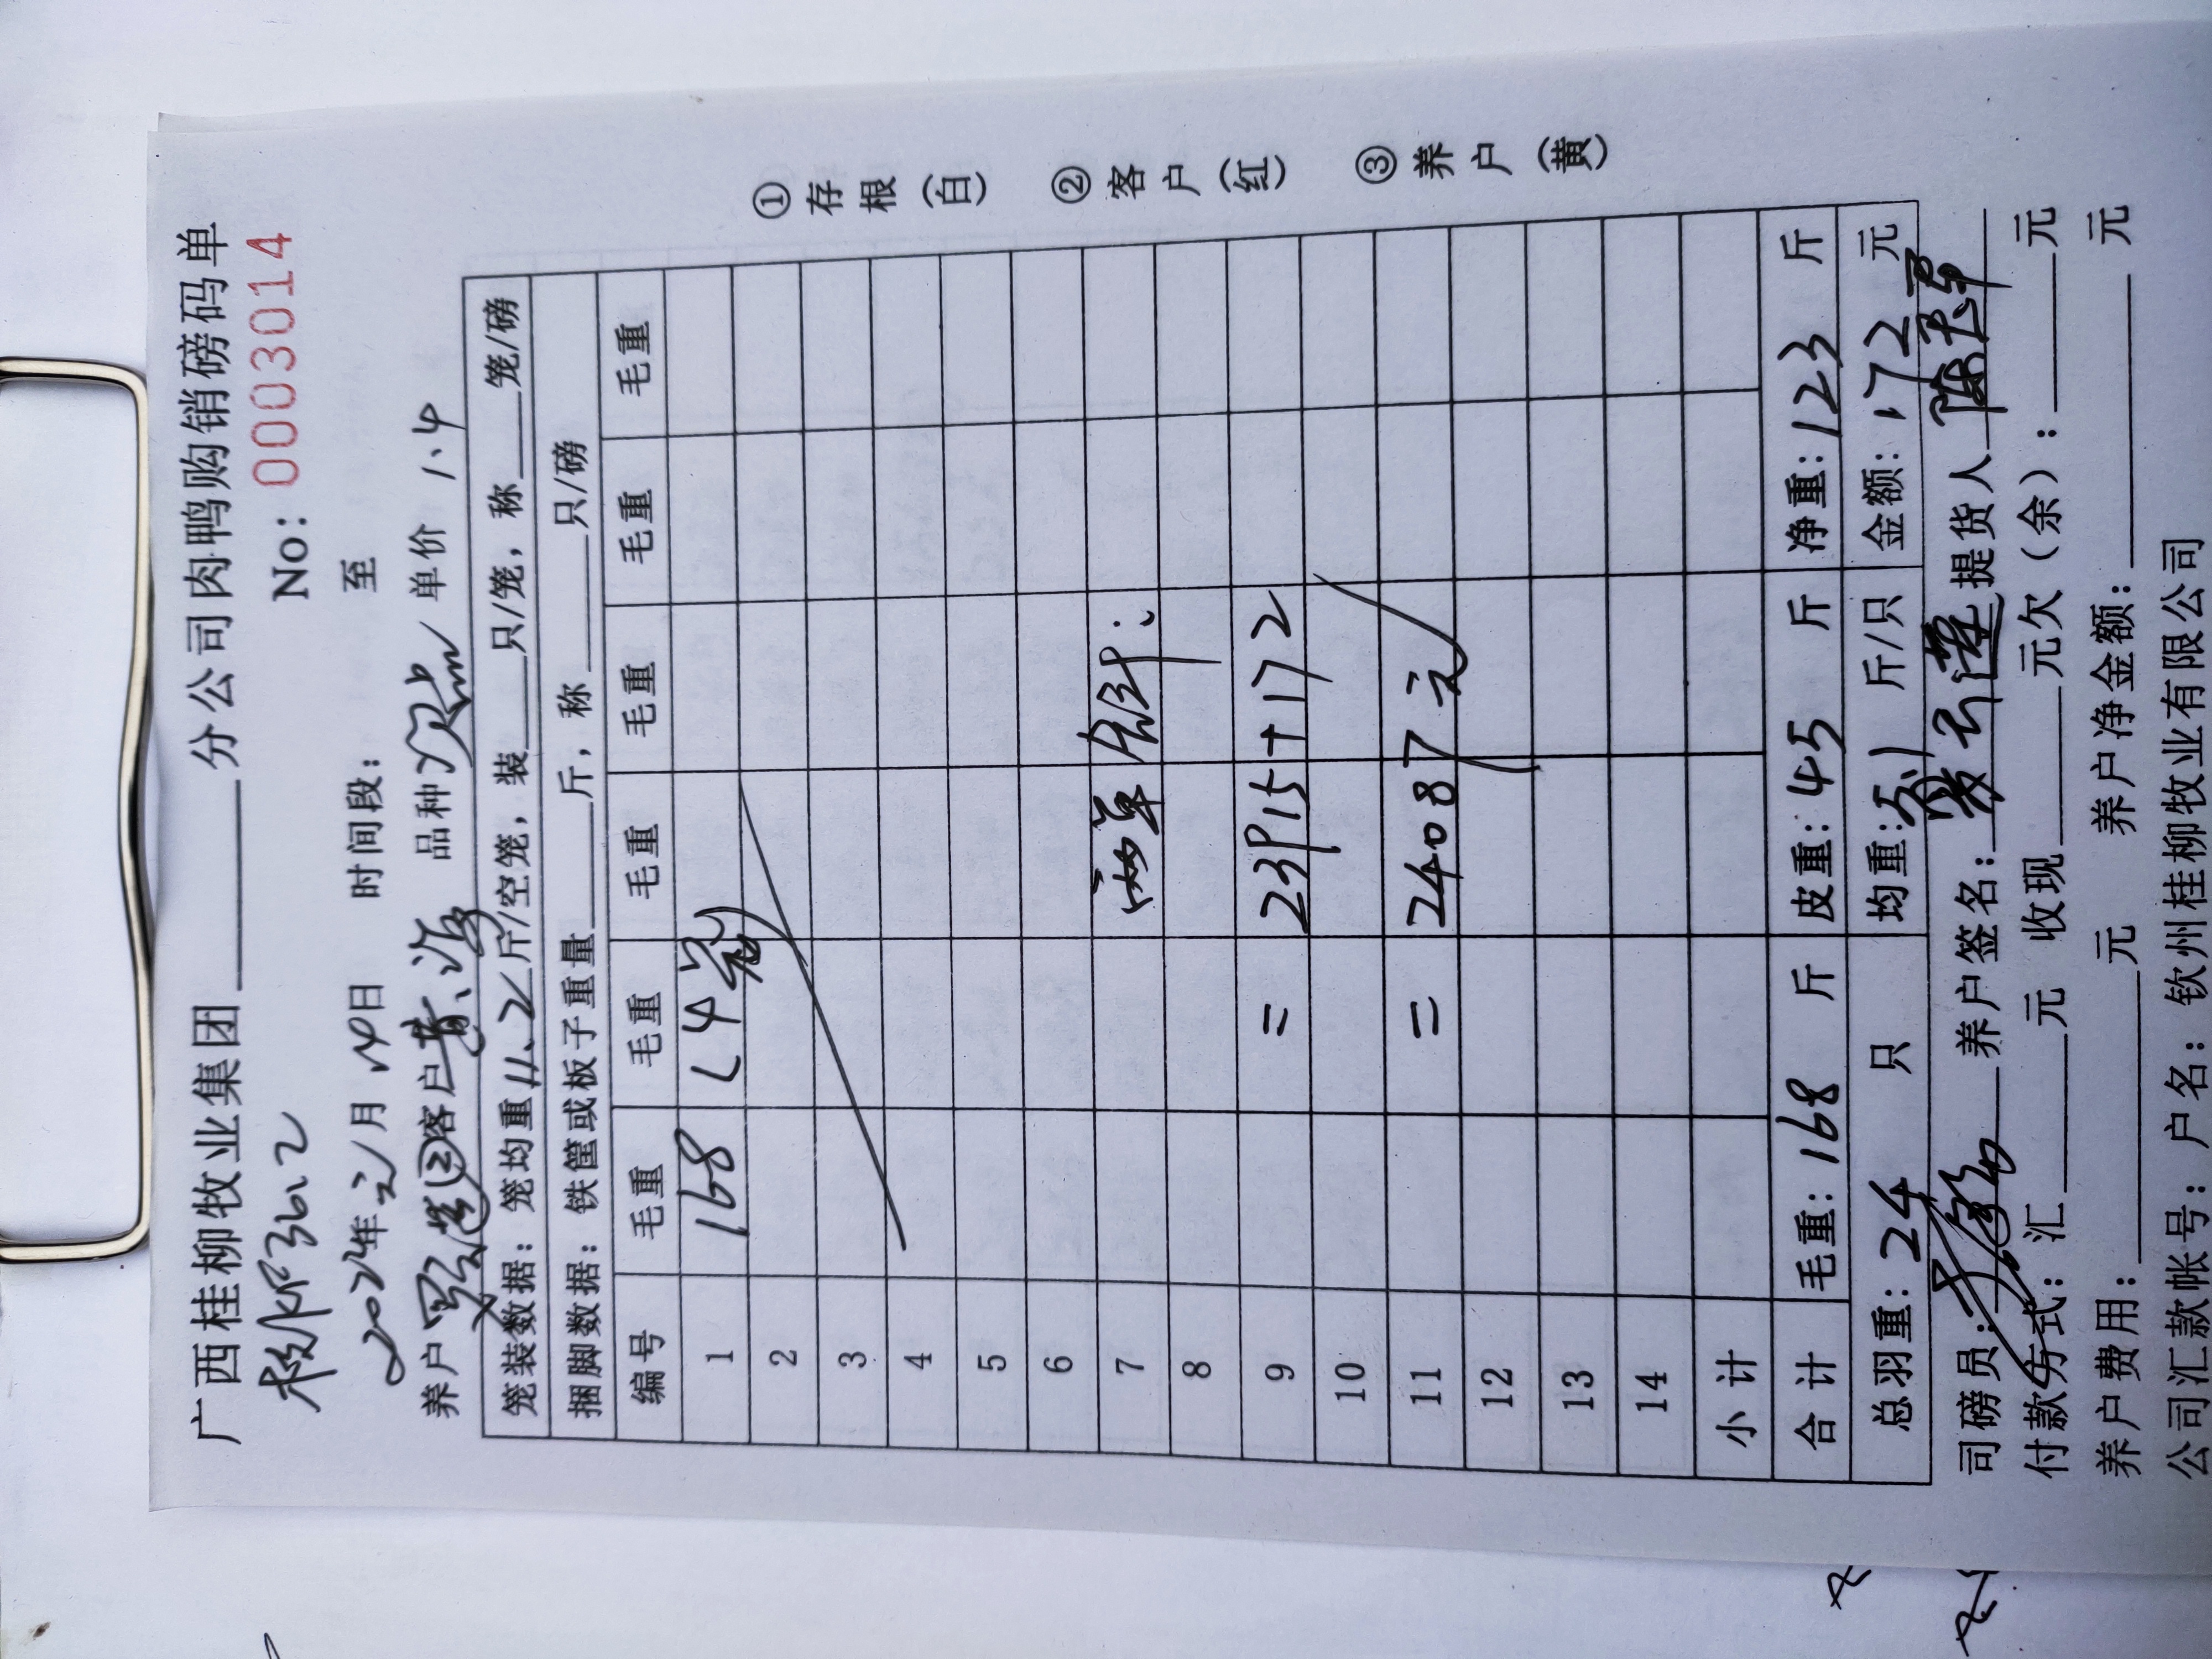 广西桂柳牧业集团______分公司肉鸭购销磅码单
No: 0003014
2024年 月 日 时间段： 至
养户 客户 品种 次品 单价 1.4
笼装数据：笼均重11.2斤/空笼，装___只/笼，称___笼/磅
捆脚数据：铁筐或板子重量______斤，称______只/磅
编号 毛重 毛重 毛重 毛重 毛重 毛重
1 168 (4笼)
2
3
4
5
6
7 两单合计：
8
9 = 23915+172
10
11 = 24087元
12
13
14
小计
合计 毛重：168 斤 皮重：45 斤 净重：123 斤
总羽重：24 只 均重：5.1 斤/只 金额：172 元
司磅员： 养户签名： 提货人
付款方式：汇______元 收现______元欠（余）：______元
养户费用：______元 养户净金额：______元
公司汇款帐号：户名：钦州桂柳牧业有限公司
①存根（白） ②客户（红） ③养户（黄）